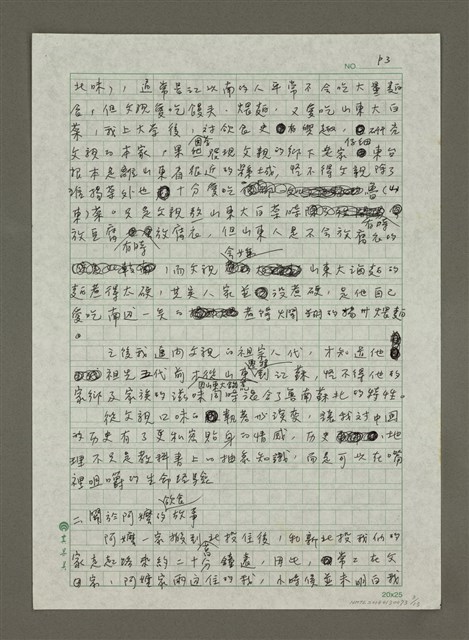 NO. P3
北味），通常是江以南的人平常不會吃大量麵
食，但父親愛吃饅頭、煨麵，又愛吃山東大白
菜，我上大學後，對飲食史有興趣，研究
父親的本家，果然發現父親的鄉下老家，東台
根本是離山東省很近的縣城，怪不得父親除了
淮揚菜外也十分愛吃魯（山
東）菜。只是父親放山東大白菜時
放豆腐放腐衣，但山東人是不會放腐衣的
有時
有時
，而父親會嫌山東大滷麵的
麵煮得太硬，其實人家並沒煮硬，是他自己
愛吃南邊一點的煮得爛糊的揚州煨麵
。
之後我追問父親的祖宗八代，才知道他
祖先五代前從山東到江蘇，怪不得他的
家鄉及家族的滋味同時混合了蘇南蘇北的特性。
從父親口味的執著必演變，讓我對中國
的歷史有了更私密貼身的情感，歷史、地
理不只是教科書上的抽象知識，而是可以在嘴
裡咀嚼的生命經驗
二 關於阿嬤的飲食故事
阿嬤一家搬到北投住後，和新北投我們的
家走起路來約二十分鐘遠，因此，常常在父
母家、阿嬤家兩邊住的我，小時候並未明白我
20x25